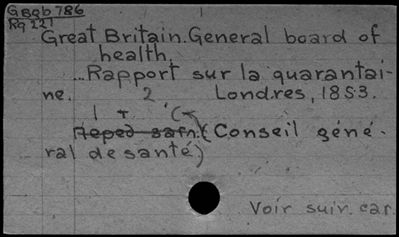 GBQb 786
Rq 221
Great Britain. General board of
health.
...Rapport sur la quarantai-
ne. 2 Londres, 1853.
(Conseil géné-
ral de santé)
Voir suiv. car.